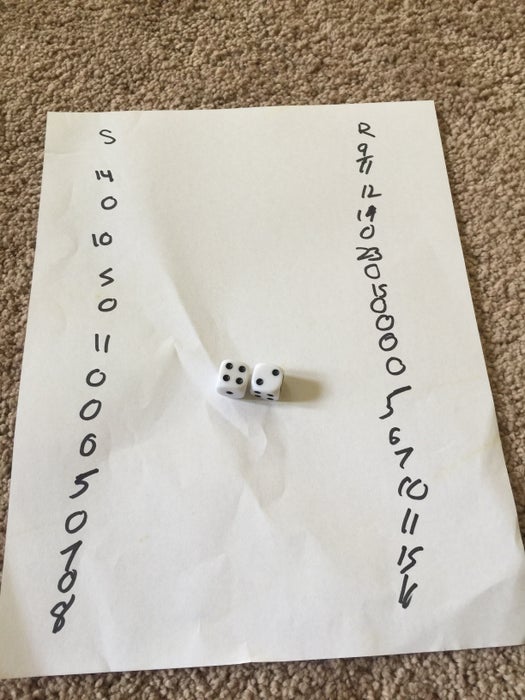 S
14
0
10
5
0
11
0
0
0
5
0
7
0
8
R
9
11
12
19
0
23
0
15
0
0
0
0
5
6
7
10
11
15